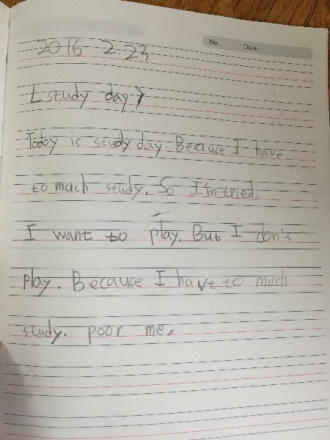 No.
Date
2016 2.23
<study day>
Today is study day. Because I have
to much study. So I'm tried.
I want to play. But I don't
play. Because I have to much
study. poor me.